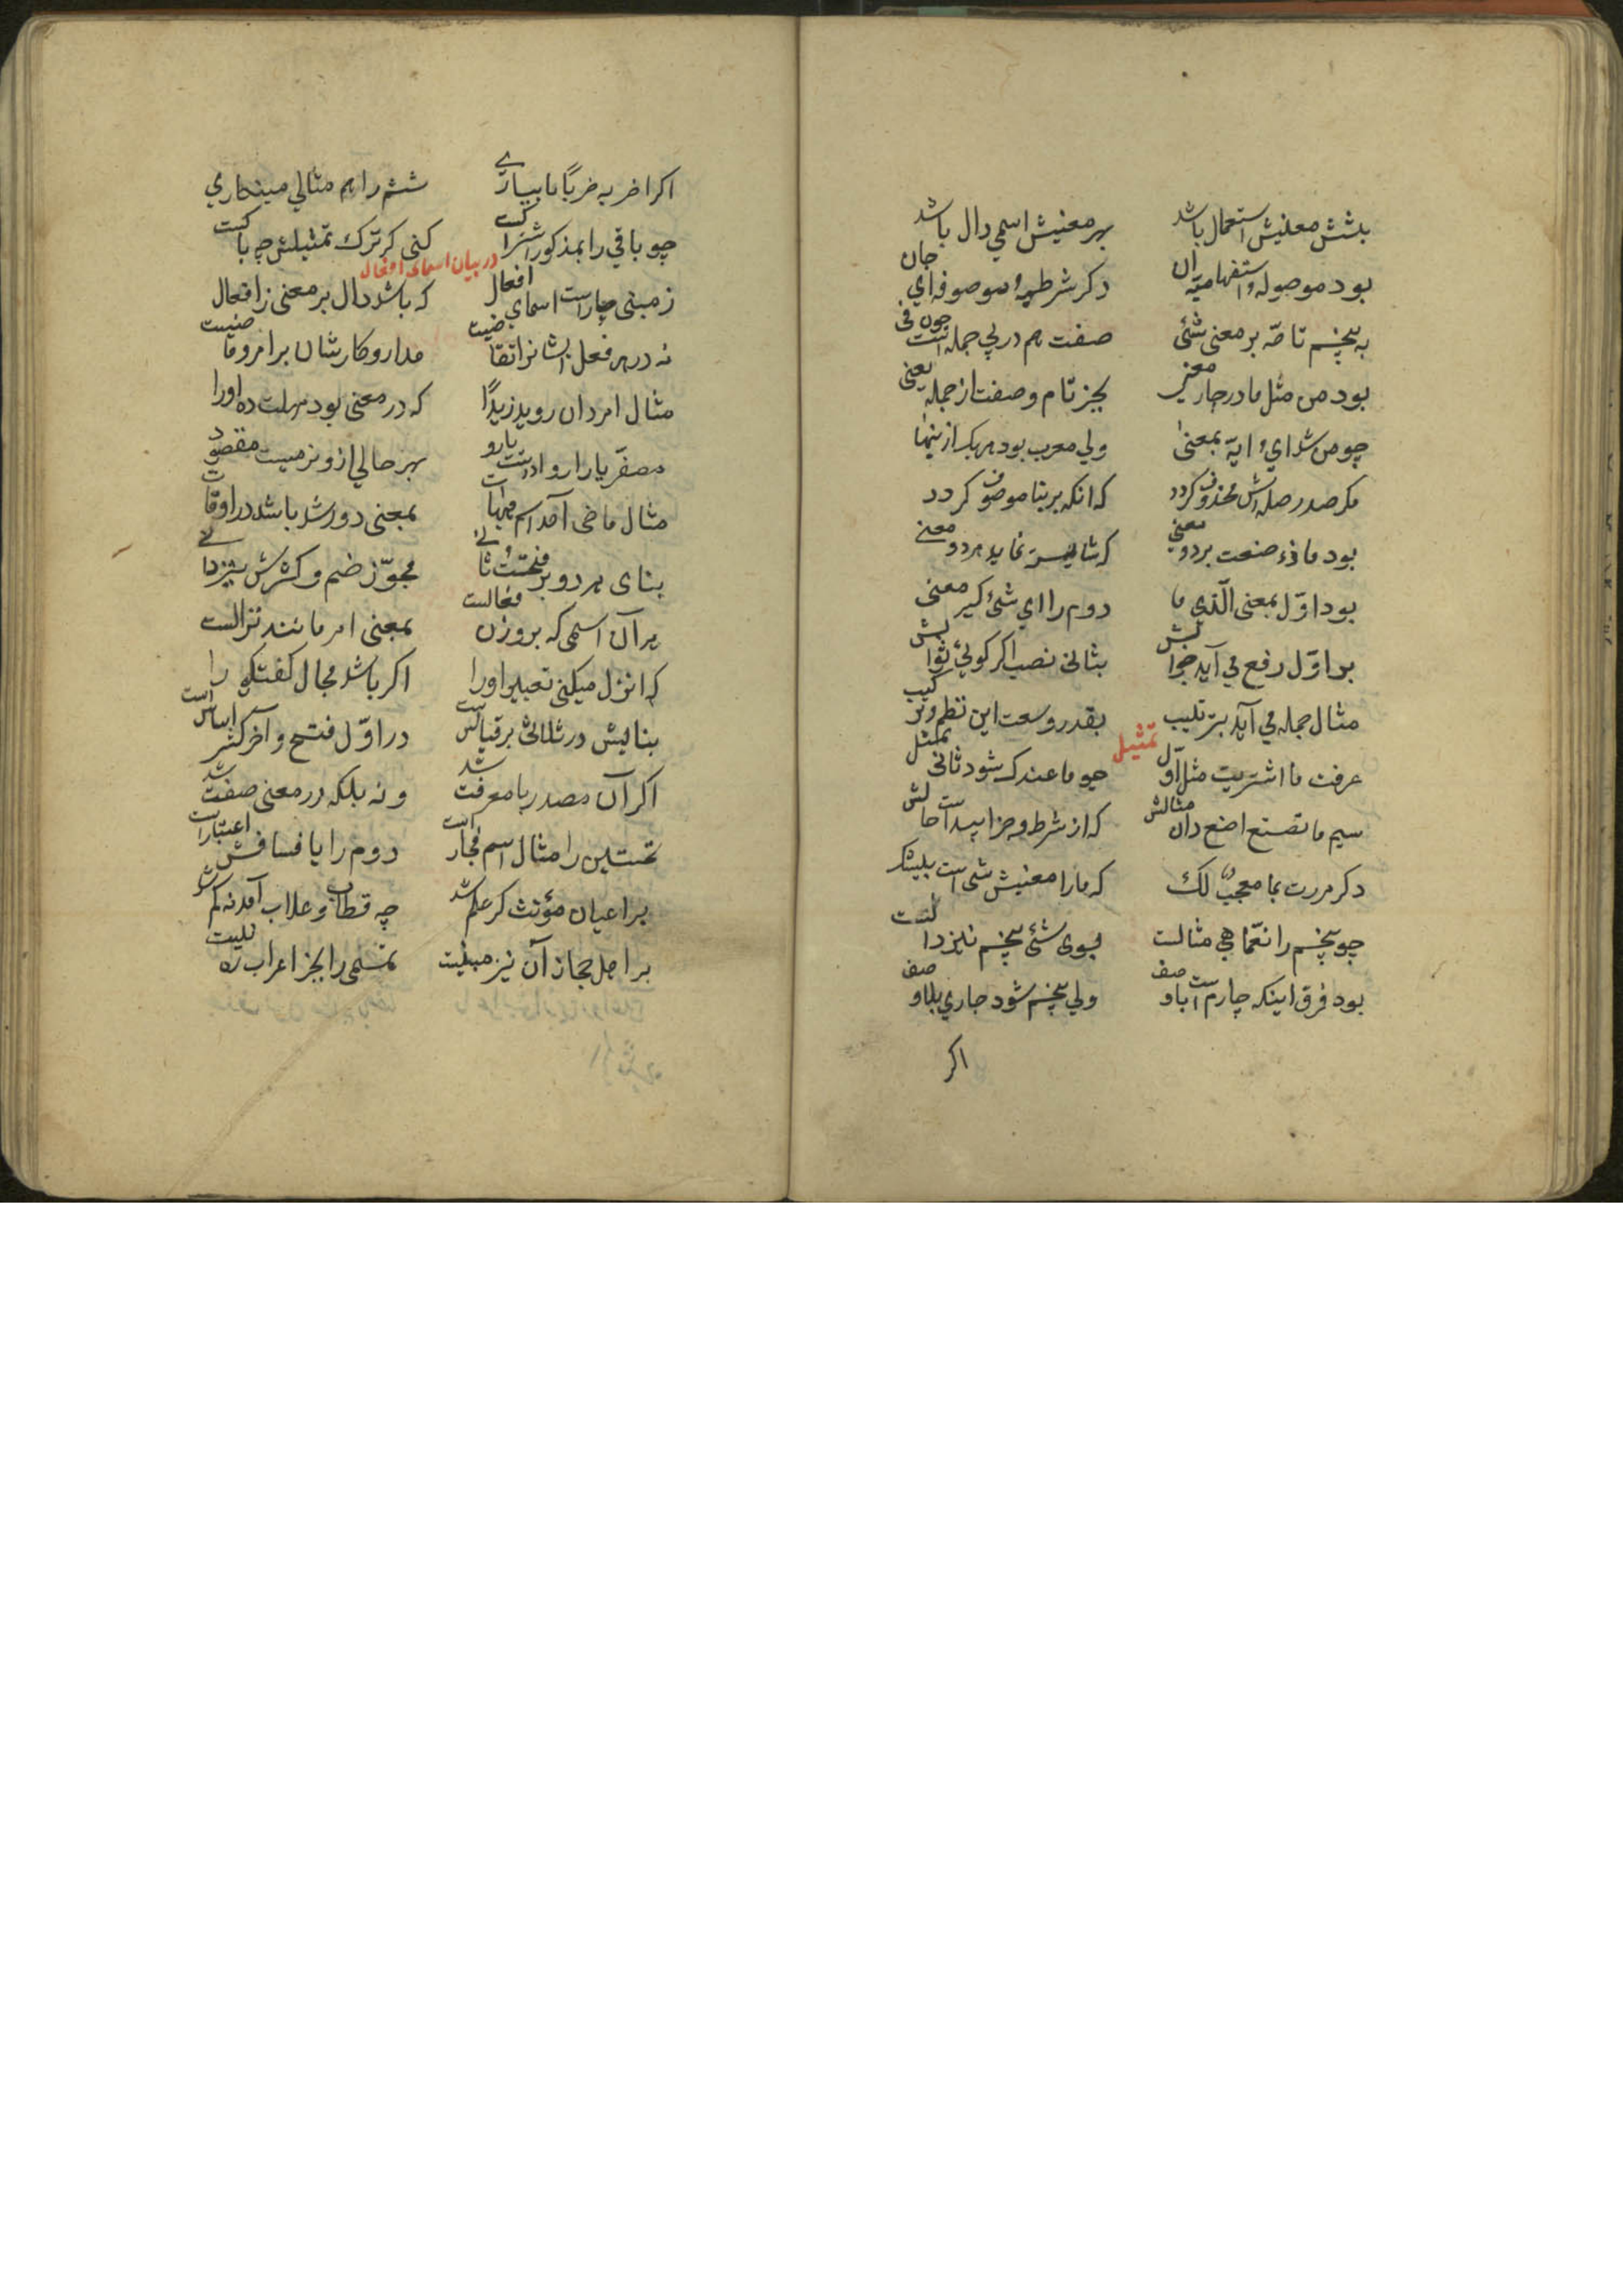 بشش معنیش استعمال باشد بهر معنیش اسمی دال باشد
بود موصوله و استفهامیه ان دکر شرطیه و موصوفه ای جان
به پنجم تامّه بر معنی شئ صفت هم در پی جمله است چون فی
بود من مثل ما در چار معنی بجز تام و صفت از جمله یعنی
چو من شد ای و ایّه بمعنی ولی معرب بود هر یک ازینها
مکر صدر صله‌اش محذوف کردد که انکه بر بنا موصوف کردد
بود ماذا صنعت بر دو معنی که شایسته نماید هر دو معنی
بود اوّل بمعنی الّذی ما دوم را ای شئ کیر معنی
بر اوّل رفع می آید جوابش بثانی نصب اکر کوئی ثوابش
مثال جمله می آید بترتیب بقدر وسعت این نظم و ترکیب
تمثیل
عرفت ما اشتریت مثل اوّل چو ما عندک شود ثانی ممثل
سیم ما تصنع اصنع دان مثالش که از شرط و جزا پیداست حالش
دکر مررت بما معجب لک که ما را معنیش شی است بیشک
چو پنجم را نعمّا هی مثالست بسوی شئ پنجم نیز دالست
بود فرق اینکه چارم است با وصف ولی پنجم شود جاری بلا وصف
اکر
اکر اضربه ضربًا ما بیاری ششم را هم مثالی مینکاری
چو باقی را بمذکور اشتراکست کنی کر ترک تمثیلش چه باکست
در بیان اسماء افعال
ز مبنی چار است اسمای افعال که باشد دال بر معنی ز افعال
نه در هر فعل ایشانرا تقاضیست مدار و کارشان بر امر و ماضیست
مثال امر دان روید زیدًا که در معنی بود مهلت ده اورا
مصغّر یا را رواد است یا رو بهر حالی ازو نرمیست مقصود
مثال ماضی آمد اسم هیهات بمعنی دور شد باشد در اوقات
بنای هر دو بر فتحست تا نی مجوّز ضم و کسرش نیز دانی
هر آن اسمی که بر وزن فعالست بمعنی امر مانند نزالست
که انزل میکنی تعبیر اورا اکر باشد مجال کفتکو را
بنالیش در ثلاثی بر قیاس است در اوّل فتح و آخر کسر اساس است
اکر آن مصدر با معرفت شد و نه بلکه در معنی صفت شد
نخستین را مثال اسم فجار است دوم را یا فساقش اعتبار است
بر اعیان مؤنث کر علم شد چه قطاب و علاب آمد نه کم شد
بر اهل حجاز آن نیز مبنیست تمیمی را بجز اعراب ره نیست